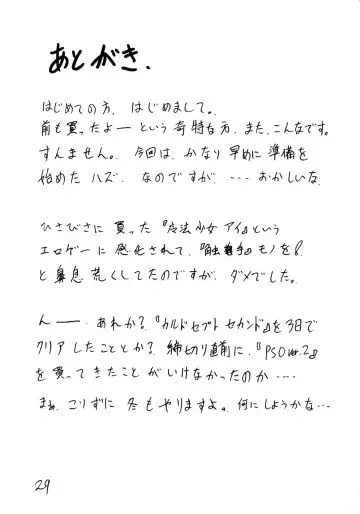 あとがき.
はじめての方、はじめまして。
前も買ったよーという奇特な方、また、こんなです。
すんません。今回は、かなり早めに準備を
始めたハズ、なのですが、…おかしいな
ひさびさに買った『魔法少女アイ』という
エロゲーに感化されて、『触手』モノを!
と鼻息荒くしてたのですが、ダメでした。
んー、あれか?『カルドセプト セカンド』を3日で
クリアしたこととか?締切り直前に、『PSO ver.2』
を買ってきたことがいけなかったのか…
まぁ、こりずに冬もやりますよ。何にしようかな…
29